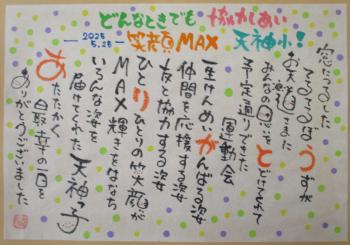 どんなときでも 協力しあい
2025
5.25
笑顔MAX 天神小！
窓につるした
てるてるぼうずが
お天道さまに
みんなの思いをとどけてくれて
予定通りできた
運動会
一生けんめいがんばる姿
仲間を応援する姿
友と協力する姿
ひとりひとりの笑顔が
MAX輝きをはなち
いろんな姿を
届けてくれた 天神っ子
あたたかく
最幸の一日を
ありがとうございました